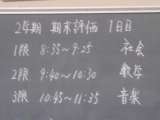 2年期 期末評価 1日目
1限 8:35～9:25 社会
2限 9:40～10:30 数学
3限 10:45～11:35 音楽